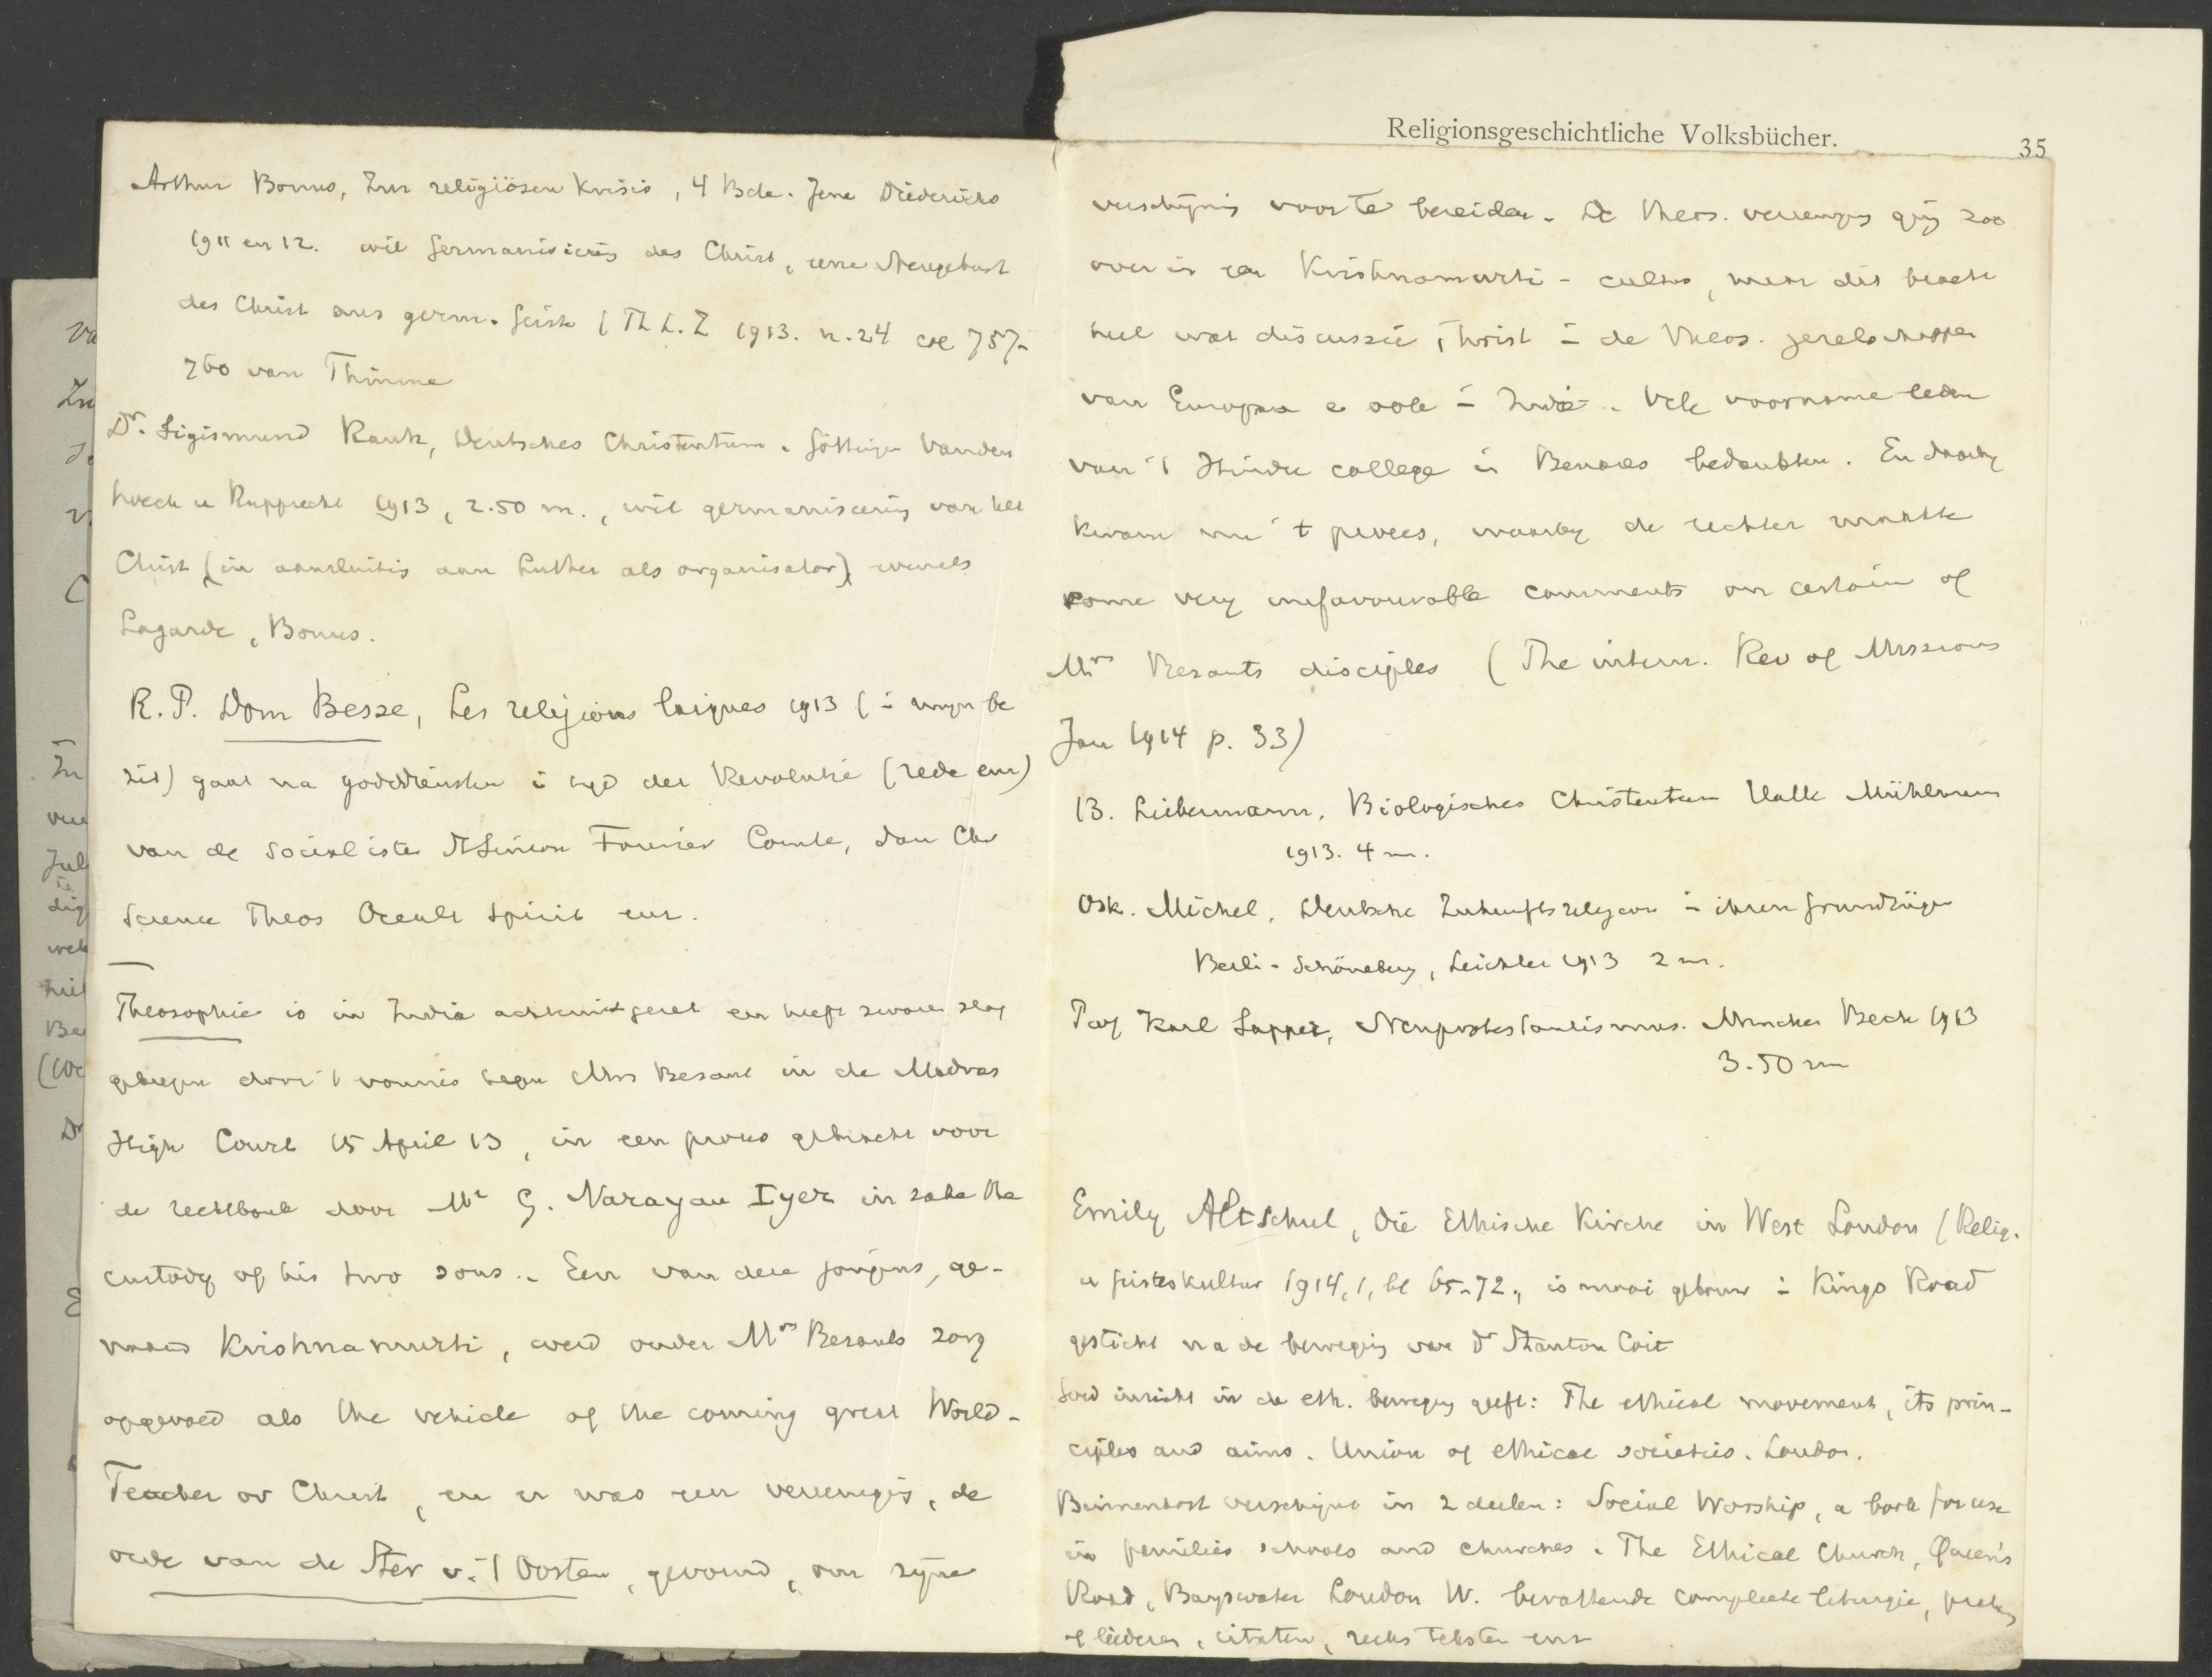 Arthur Bonus, Zur religiösen Krisis, 4 Bde. Jena Diederichs
1911 en 12. wil Germanisierg des Christ, eine Neugeburt
des Christ aus germ. Geiste (Th L. Z 1913. n. 24 col 757-
760 van Thimme
Dr. Sigismund Rauh, Deutsches Christentum. Göttingen Vanden
hoeck u Rupprecht 1913, 2.50 m., wil germaniseering van het
Christ (in aansluitig aan Luther als organisator), evenals
Lagarde, Bonus.
R. P. Dom Besse, Les religions laiques 1913 (i mijn be
zit) gaat na godsdiensten i tijd der Revolutie (rede enz)
van de socialisten St Simon Fourier Comte, dan Chr
Science Theos Occult Spirit enz.
Theosophie is in India achteruitgeset en heeft zware slag
gekregen door 't vonnis tegen Mrs Besant in de Madras
High Court 15 April 13, in een proces gebracht voor
de rechtbank door Mr G. Narayan Iyer in zake the
custody of his two sons. Een van deze jongens, ge-
naamd Krishnamurti, werd onder Mrs Besants zorg
opgevoed als the vehicle of the coming great World-
Teacher or Christ, en er was een vereenigig, de
orde van de Ster v. 't Oosten, gevormd, om zijne
Religionsgeschichtliche Volksbücher.
35
verschijnig voor te bereiden. De Theos. vereenigig ging zoo
over in een Krishnamurti-cultus, maar dit bracht
heel wat discussie, twist i de Theos. gezelschappen
van Europa e ook i Indië. Vele voorname leden
van 't Hindu college in Benares bedankten. En daarbij
kwam nu 't proces, waarbij de rechter maakte
some very unfavourable comments on certain of
Mrs Besants disciples (The intern. Rev of Missions
Jan 1914 p. 33)
B. Liebermann, Biologisches Christentum Halle Mühlmann
1913. 4 m.
Osk. Michel, Deutsche Zukunftsreligion i ihren Grundzügen
Berli-Schöneberg, Leichter 1913 2 m.
Karl Sapper, Neuprotestantismus. Munchen Beck 1913
3.50 m
Emily Altschul, Die Ethische Kirche in West London (Relig.
u Geisteskultur 1914, 1, bl 65-72., is mooi gebouw i Kings Road
gesticht na de bewegig van Dr Stanton Coit
Goed inzicht in de eth. bewegig geeft: The ethical movement, its prin-
ciples and aims. Union of ethical societies. London.
Binnenkort verschijnt in 2 deelen: Social Worship, a book for use
in families schools and churches. The Ethical Church, Queen's
Road, Bayswater London W. bevattende complete liturgie,
of liederen, citaten, reeks teksten enz